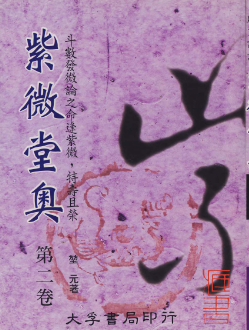 斗數發微論之命逢紫微，特壽且榮
紫微堂奧
第二卷
堃元著
大孚書局印行